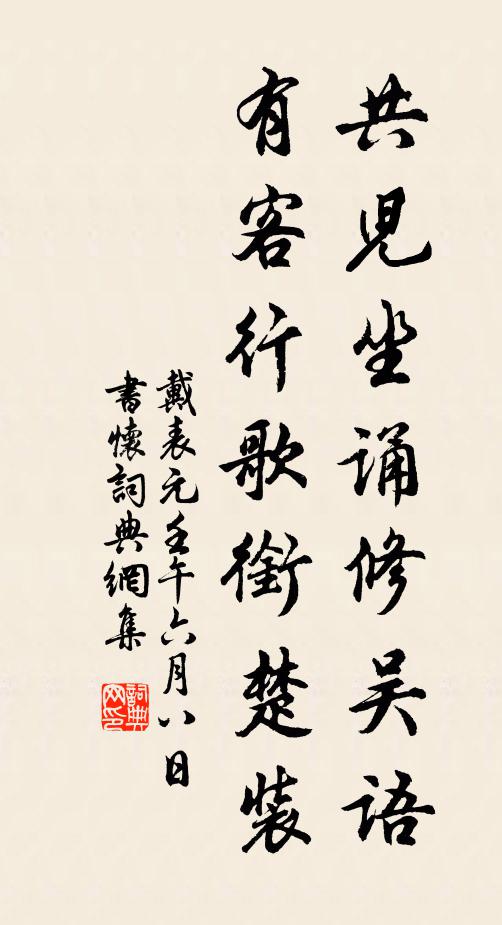 共児坐誦修吴语
有客行歌衘楚裝
戴表元壬午六月八日
書懷詞典網集
詞典网印